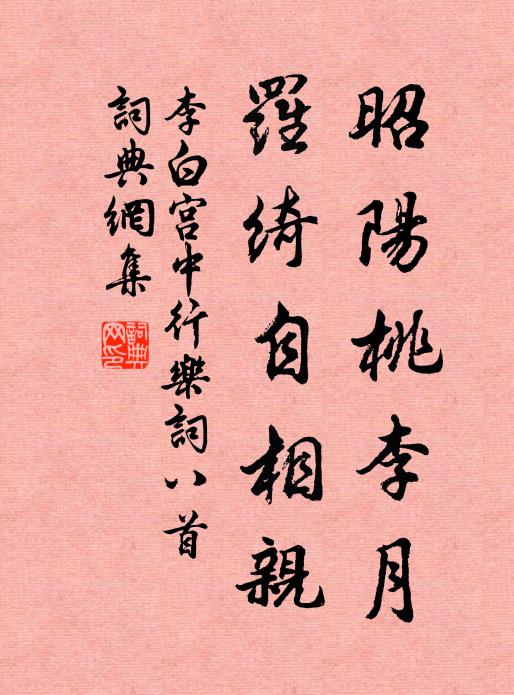 昭陽桃李月
羅綺自相親
李白宮中行樂詞八首
詞典網集
詞典網印